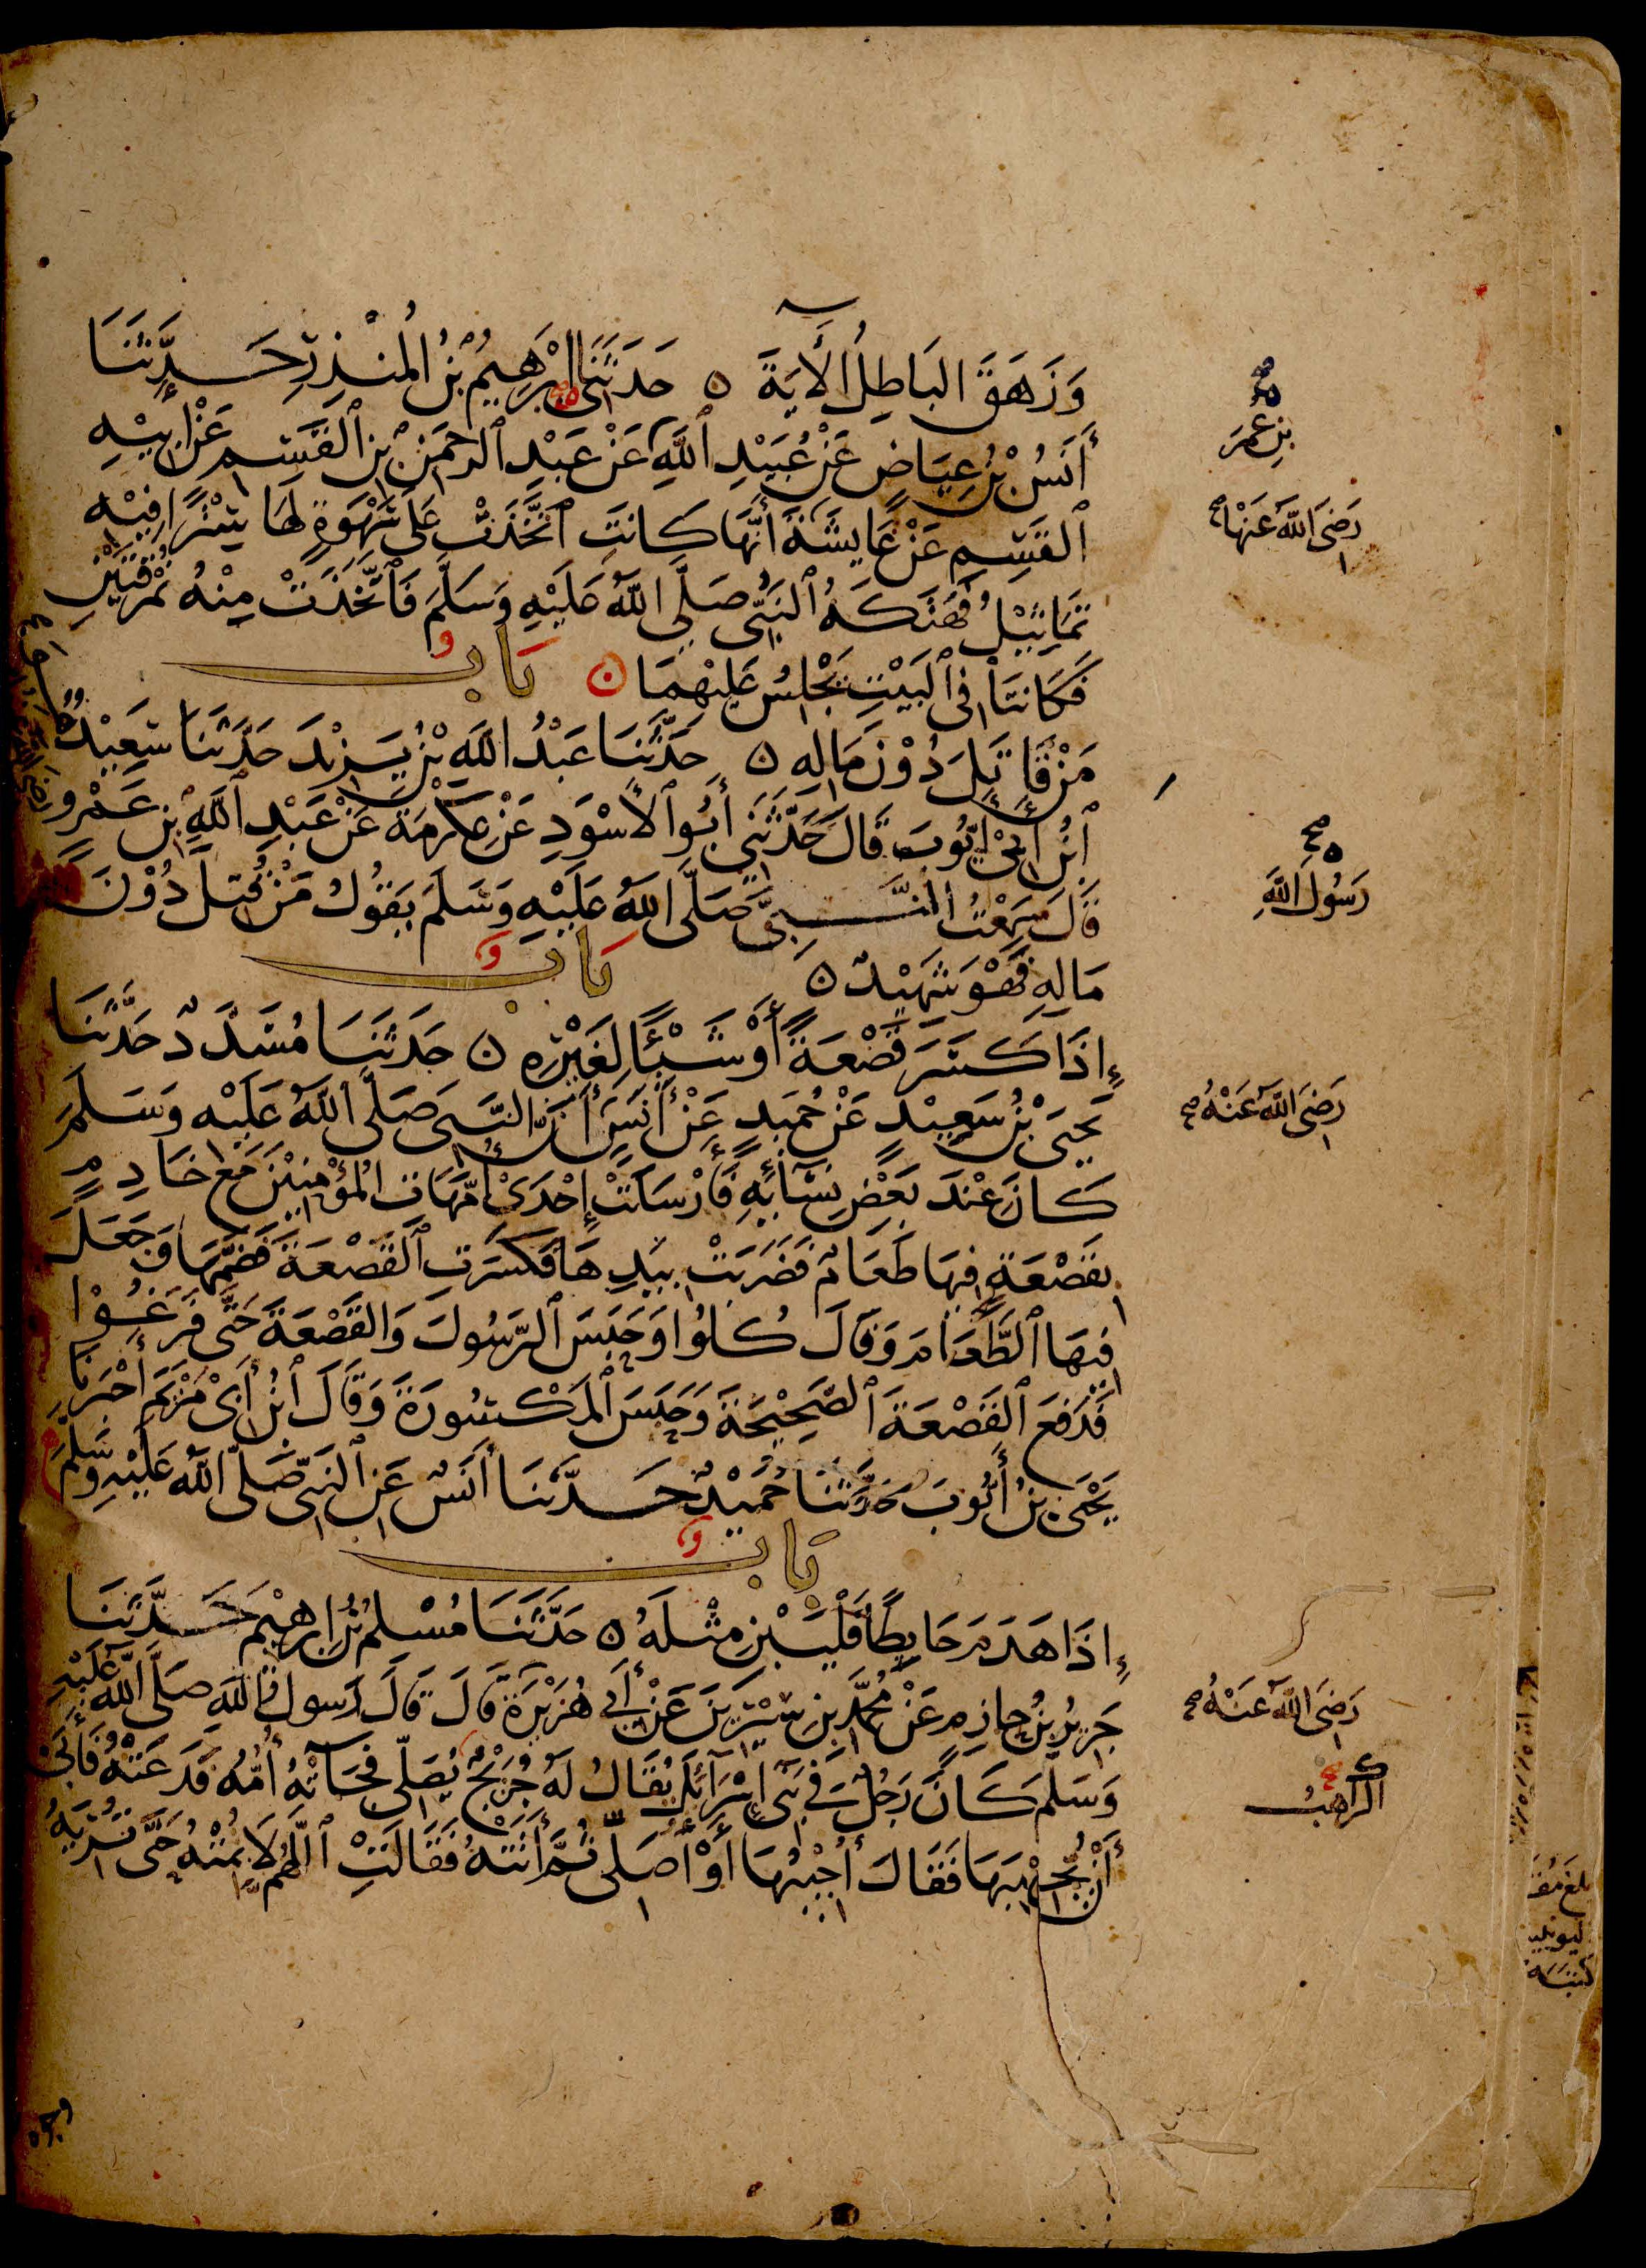 وَزَهَقَ البَاطِلُ الأَيَةَ ٥ حَدَثَنَى ابْرَهِيمُ بْنُ المُنْذِرِ حَدَّثَنَا
بْنِ عُمَرَ
أَنَسُ بْنُ عِيَاضٍ عَنْ عُبَيْدِ ٱللَّهِ عَنْ عَبْدِ ٱلرحمَنِ بْنِ ٱلقَسِمِ عَنْ ابِيْهِ
رَضِىَ اللَّهُ عَنْهَا صح
ٱلقَسِمِ عَنْ عَايِشَةَ أَنَّهَا كَانَتِ ٱتَّخَذَتْ عَلَى سَهْوَةٍ لَهَا سِتْرًا فِيْهِ
تَمَاثِيْلُ فَهَتَكَهُ ٱلنَبِىُّ صَلَّى اللَّهُ عَلَيْهِ وَسَلَّمَ فَٱتَّخَذَتْ مِنْهُ نُمْرُقَتَيْنِ
فَكَانَتَا فِى ٱلبَيْتِ يَجْلِسُ عَلَيْهِمَا ٥ بَابُ
مَنْ قَاتَلَ دُوْنَ مَالِهِ ٥ حَدَّثَنَا عَبْدُ اللَّهِ بْنُ يَزِيْدَ حَدَّثَنَا سَعِيْدٌ
ٱبْنُ أَبِىْ أَيُّوبَ قَالَ حَدَّثَنِى أَبُو ٱلأَسْوَدِ عَنْ عِكْرِمَةَ عَنْ عَبْدِ ٱللَّهِ بْنِ عَمْرٍو
رَسُولَ اللَّهِ
قَالَ سَمِعْتُ النَّبِىَّ صَلَّى اللَّهُ عَلَيْهِ وَسَلَّمَ يَقُولُ مَنْ قُتِلَ دُوْنَ
مَالِهِ فَهْوَ شَهِيْدٌ ٥ بَابُ
إِذَا كَسَرَ قَصْعَةً أَوْ شَيْئًا لِغَيْرِهِ ٥ حَدَثَنَا مُسَدَّدٌ حَدَّثَنَا
رَضِىَ اللَّهُ عَنْهُ صح
يَحْيَى بْنُ سَعِيْدٍ عَنْ حُمَيْدٍ عَنْ أَنَسٍ أَنَّ النَّبِىَّ صَلَّى اللَّهُ عَلَيْهِ وَسَلَمَ
كَانَ عِنْدَ بَعْضِ نِسَآئِهِ فَأَرْسَلَتْ إِحْدَىْ أُمَّهَاتِ المُؤْمِنِيْنَ مَعَ خَادِمٍ
بِقَصْعَةٍ فِيهَا طَعَامٌ فَضَرَبَتْ بِيَدِهَا فَكَسَرَتِ ٱلقَصْعَةَ فَضَمَّهَا وَجَعَلَ
فِيْهَا ٱلطَّعَامَ وَقَالَ كُلُوا وَحَبَسَ ٱلرَّسُولَ وَالقَصْعَةَ حَتَّى فَرَغُوْا
فَدَفَعَ ٱلقَصْعَةَ ٱلصَّحِيْحَةَ وَحَبَسَ ٱلمَكْسُورَةَ وَقَالَ ٱبْنُ أَبِىْ مَرْيَمَ أَخْبَرَنَا
يَحْيَى بْنُ أَيُّوبَ حَدَّثَنَا حُمَيْدٌ حَدَّثَنَا أَنَسٌ عَنِ ٱلنَبِىِّ صَلَّى اللَّهُ عَلَيْهِ وَسَلَّمَ
بَابُ
إِذَا هَدَمَ حَايِطًا فَلْيَبْنِ مِثْلَهُ ٥ حَدَّثَنَا مُسْلِمُ بْنُ إبرَهِيْمَ حَدَّثَنَا
رَضِىَ اللَّهُ عَنْهُ صح
جَرِيْرُ بْنُ حازِمٍ عَنْ مُحَمَّدِ بْنِ سِيْرِيْنَ عَنْ أَبِى هُرَيْرَةَ قَالَ قَالَ رَسولُ اللَّهِ صَلَّى اللَّهُ عَلَيْهِ
الرَّاهِبُ
وَسَلَمَ كَانَ رَجُلٌ فِى بَنِى إِسْرَآئِلَ يُقَالُ لَهُ جُرَيْجٌ يُصَلِّى فَجَآتْهُ أُمُّهُ فَدَعَتْهُ فَأَبَىْ
أَنْ يُجِيْبَهَا فَقَالَ أُجِيْبُهَا أَوْ أُصَلِّى ثُمَّ أَتَتْهُ فَقَالَتِ ٱللَّهُمَّ لَا تُمِتْهُ حَتَّى تُرِيَهُ